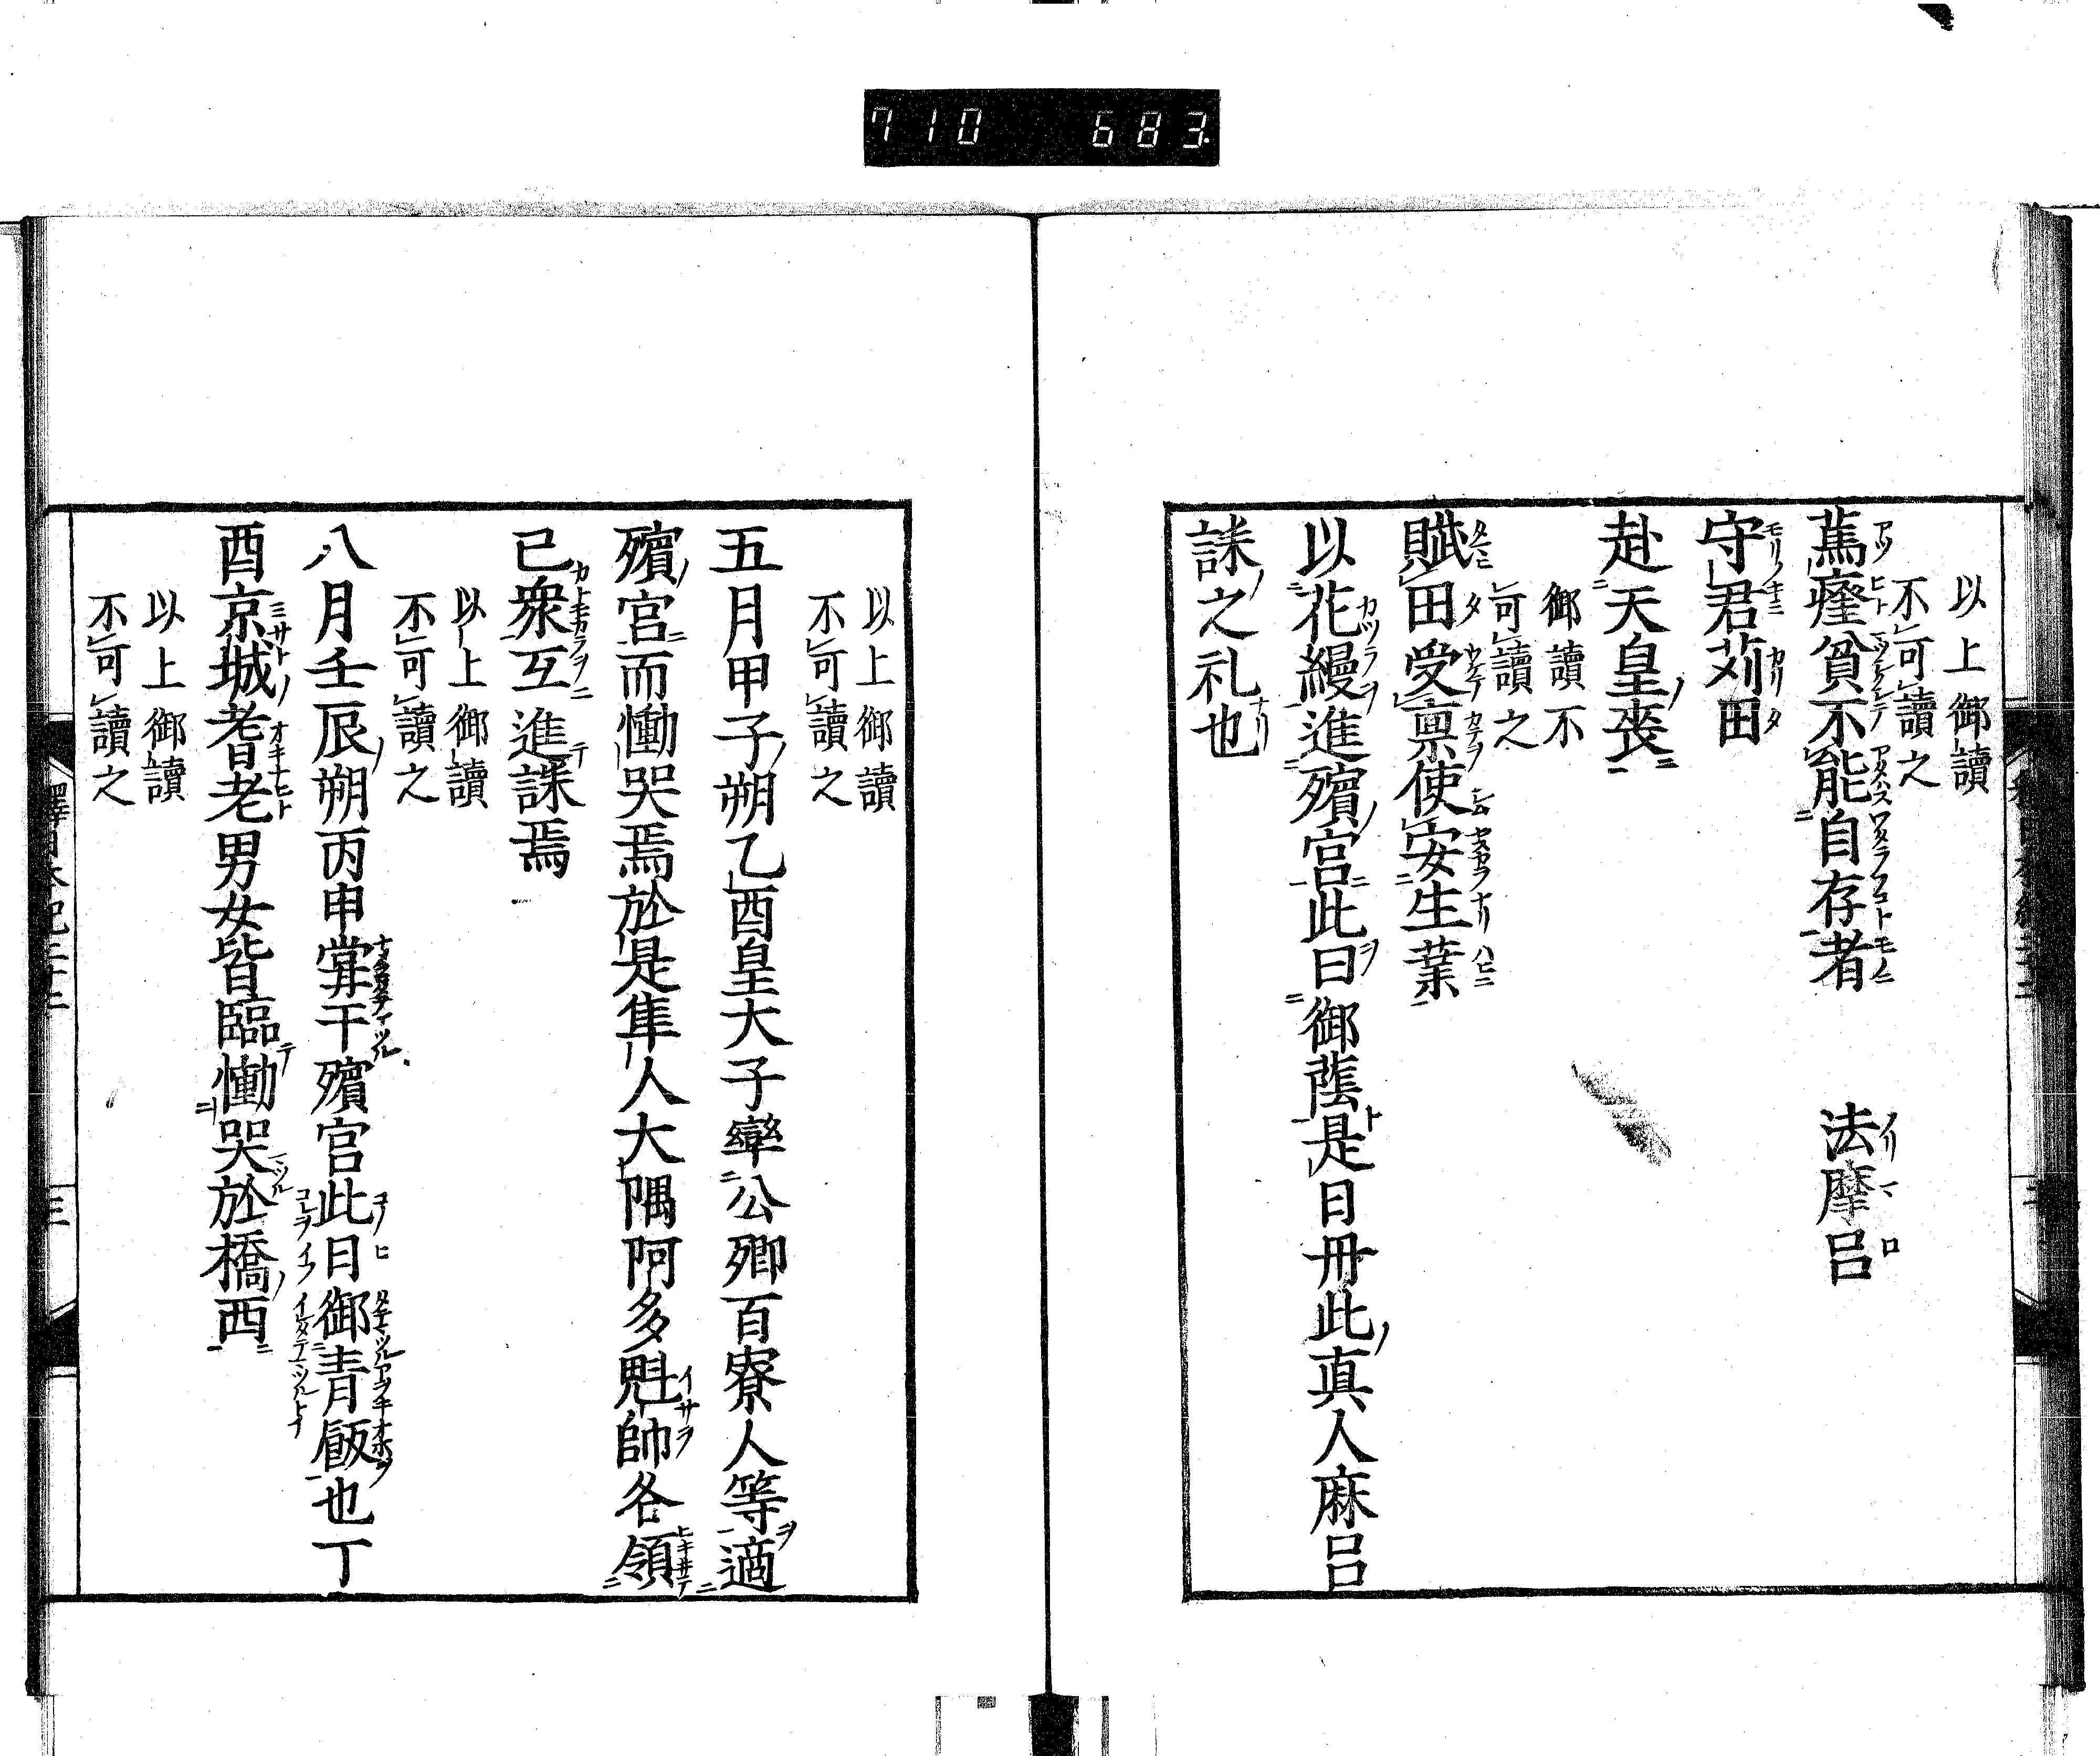 710 683
以上御讀
不可讀之
篤癃貧不能自存者 法摩呂
守君苅田
赴天皇喪
御讀不
可讀之
賦田受稟使安生業
以花縵進殯宮此曰御蔭是日丹此真人麻呂
誄之礼也
以上御讀
不可讀之
五月甲子朔乙酉皇大子率公卿百寮人等適
殯宮而慟哭焉於是隼人大隅阿多魁帥各領
已衆互進誄焉
以上御讀
不可讀之
八月壬辰朔丙申甞于殯宮此日御青飯也丁
酉京城耆老男女皆臨慟哭於橋西
以上御讀
不可讀之
三